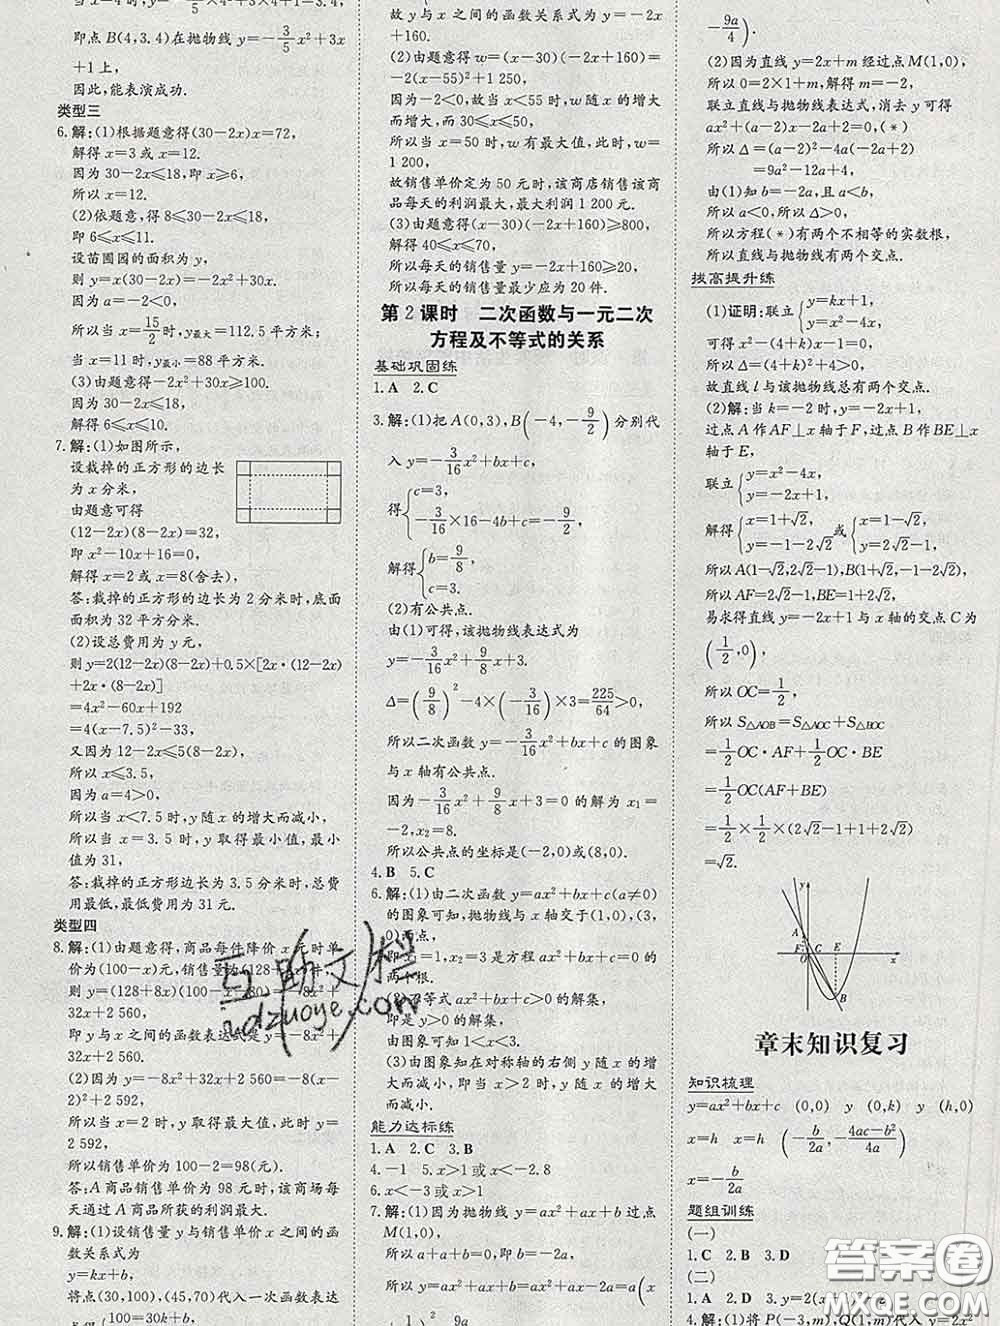 当 x=4 时,y=-3/5×4²+3×4+1=3.4,
即点 B(4,3.4)在抛物线 y=-3/5x²+3x
+1上,
因此,能表演成功.
类型三
6.解:(1)根据题意得(30-2x)x=72,
解得 x=3 或 x=12.
因为 30-2x≤18,即 x≥6,
所以 x=12.
(2)依题意,得 8≤30-2x≤18,
即 6≤x≤11.
设苗圃园的面积为 y,
则 y=x(30-2x)=-2x²+30x.
因为 a=-2<0,
所以当 x=15/2时,y最大=112.5 平方米;
当 x=11 时,y最小=88 平方米.
(3)由题意得-2x²+30x≥100.
因为 30-2x≤18,
解得 6≤x≤10.
7.解:(1)如图所示,
设裁掉的正方形的边长
为 x 分米,
由题意可得
(12-2x)(8-2x)=32,
即 x²-10x+16=0,
解得 x=2 或 x=8(舍去),
答:裁掉的正方形的边长为2分米时,底面
面积为 32 平方分米.
(2)设总费用为 y 元,
则 y=2(12-2x)(8-2x)+0.5×[2x·(12-2x)
+2x·(8-2x)]
=4x²-60x+192
=4(x-7.5)²-33,
又因为 12-2x≤5(8-2x),
所以 x≤3.5,
因为 a=4>0,
所以当 x<7.5 时,y 随 x 的增大而减小,
所以当 x=3.5 时,y 取得最小值,最小
值为 31,
答:裁掉的正方形边长为 3.5 分米时,总费
用最低,最低费用为 31 元.
类型四
8.解:(1)由题意得,商品每件降价 x 元时单
价为(100-x)元,销售量为(128+8x)件,
则 y=(128+8x)(100-x-80)=-8x²+
32x+2 560,
即 y 与 x 之间的函数表达式是 y=-8x²+
32x+2 560.
(2)因为 y=-8x²+32x+2 560=-8(x-
2)²+2 592,
所以当 x=2 时,y 取得最大值,此时 y=
2 592,
所以销售单价为 100-2=98(元).
答:A 商品销售单价为 98 元时,该商场每
天通过 A 商品所获的利润最大.
9.解:(1)设销售量 y 与销售单价 x 之间的函
数关系式为
y=kx+b,
将点(30,100),(45,70)代入一次函数表达
100=30k+b,
故 y 与 x 之间的函数关系式为 y=-2x
+160.
(2)由题意得 w=(x-30)(-2x+160)=
-2(x-55)²+1 250,
因为-2<0,故当 x<55 时,w 随 x 的增大
而增大,而 30≤x≤50,
所以当 x=50 时,w 有最大值,此时,w=
1 200,
故销售单价定为 50 元时,该商店销售该商
品每天的利润最大,最大利润 1 200 元.
(3)由题意得(x-30)(-2x+160)≥800,
解得 40≤x≤70,
所以每天的销售量 y=-2x+160≥20,
所以每天的销售量最少应为 20 件.
第 2 课时 二次函数与一元二次
方程及不等式的关系
基础巩固练
1.A 2.C
3.解:(1)把 A(0,3),B(-4,-9/2)分别代
入 y=-3/16x²+bx+c,
得{c=3, -3/16×16-4b+c=-9/2,
解得{b=9/8, c=3.
(2)有公共点.
由(1)可得,该抛物线表达式为
y=-3/16x²+9/8x+3.
Δ=(9/8)²-4×(-3/16)×3=225/64>0,
所以二次函数 y=-3/16x²+bx+c 的图象
与 x 轴有公共点.
因为-3/16x²+9/8x+3=0 的解为 x₁=
-2,x₂=8.
所以公共点的坐标是(-2,0)或(8,0).
4.B 5.C
6.解:(1)由二次函数 y=ax²+bx+c(a≠0)
的图象可知,抛物线与 x 轴交于(1,0),(3,
0)两点,
即 x₁=1,x₂=3 是方程 ax²+bx+c=0
的两个根.
(2)不等式 ax²+bx+c>0 的解集,
即是 y>0 的解集,
由图象可知 1<x<3.
(3)由图象知在对称轴的右侧 y 随 x 的增
大而减小,即当 x>2 时,y 随 x 的增大
而减小.
能力达标练
1.A 2.C 3.B
4.-1 5.x>1 或 x<-2.8
6.x<-3 或 x>1
7.解:(1)因为抛物线 y=ax²+ax+b 过点
M(1,0),
所以 a+a+b=0,即 b=-2a,
所以 y=ax²+ax+b=ax²+ax-2a=a(x
+1/2)²-9a
-9a/4).
(2)因为直线 y=2x+m 经过点 M(1,0),
所以 0=2×1+m,解得 m=-2,
联立直线与抛物线表达式,消去 y 可得
ax²+(a-2)x-2a+2=0,(*)
所以 Δ=(a-2)²-4a(-2a+2)
=9a²-12a+4,
由(1)知 b=-2a,且 a<b,
所以 a<0,所以 Δ>0,
所以方程(*)有两个不相等的实数根,
所以直线与抛物线有两个交点.
拔高提升练
(1)证明:联立{y=kx+1, y=x²-4x,
所以 x²-(4+k)x-1=0,
所以 Δ=(4+k)²+4>0,
故直线 l 与该抛物线总有两个交点.
(2)解:当 k=-2 时,y=-2x+1,
过点 A 作 AF⊥x 轴于 F,过点 B 作 BE⊥x
轴于 E,
联立{y=x²-4x, y=-2x+1,
解得{x=1+√2, y=-1-2√2 或{x=1-√2, y=2√2-1,
所以 A(1-√2,2√2-1),B(1+√2,-1-2√2),
所以 AF=2√2-1,BE=1+2√2,
易求得直线 y=-2x+1 与 x 轴的交点 C 为
(1/2,0),
所以 OC=1/2,
所以 S△AOB=S△AOC+S△BOC
=1/2OC·AF+1/2OC·BE
=1/2OC(AF+BE)
=1/2×1/2×(2√2-1+1+2√2)
=√2.
y
A
F
C
O
E
x
B
章末知识复习
知识梳理
y=ax²+bx+c (0,0) y (0,k) y (h,0)
x=h x=h (-b/2a,4ac-b²/4a)
x=-b/2a
题组训练
(一)
1.C 2.B 3.D
(二)
1.B 2.D 3.A
4.解:(1)将 P(-3,m),Q(1,m)代入 y=2x²
互助文档
udzuoye.com
答案圈
MXQE.COM